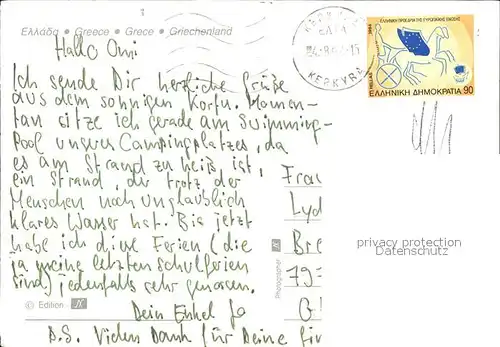 Ελλάδα • Greece • Grece • Griechenland
Hallo Omi
Ich sende Dir herzliche Grüße
aus dem sonnigen Korfu. Momen-
tan sitze ich gerade am Swimming-
Pool unseres Campingplatzes, da
es am Strand zu heiß ist,
ein Strand, der trotz der
Menschen noch unglaublich
klares Wasser hat. Bis jetzt
habe ich diese Ferien (die
ja meine letzten Schulferien
sind) jedenfalls sehr genossen.
Dein Enkel Jo
P.S. Vielen Dank für Deine
© Edition
Photographer
ΕΛΛΗΝΙΚΗ ΠΡΟΕΔΡΙΑ ΤΗΣ ΕΥΡΩΠΑΪΚΗΣ ΕΝΩΣΗΣ
HELLAS
ΕΛΛΗΝΙΚΗ ΔΗΜΟΚΡΑΤΙΑ 90
ΚΕΡΚΥΡΑ
Frau
Lyd
Bre
79
privacy protection
Datenschutz